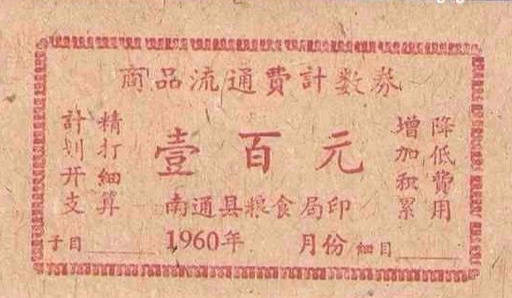 商品流通費計数券
計划开支
精打细算
壹百元
增加积累
降低費用
南通县粮食局印
子目 1960年 月份 細目